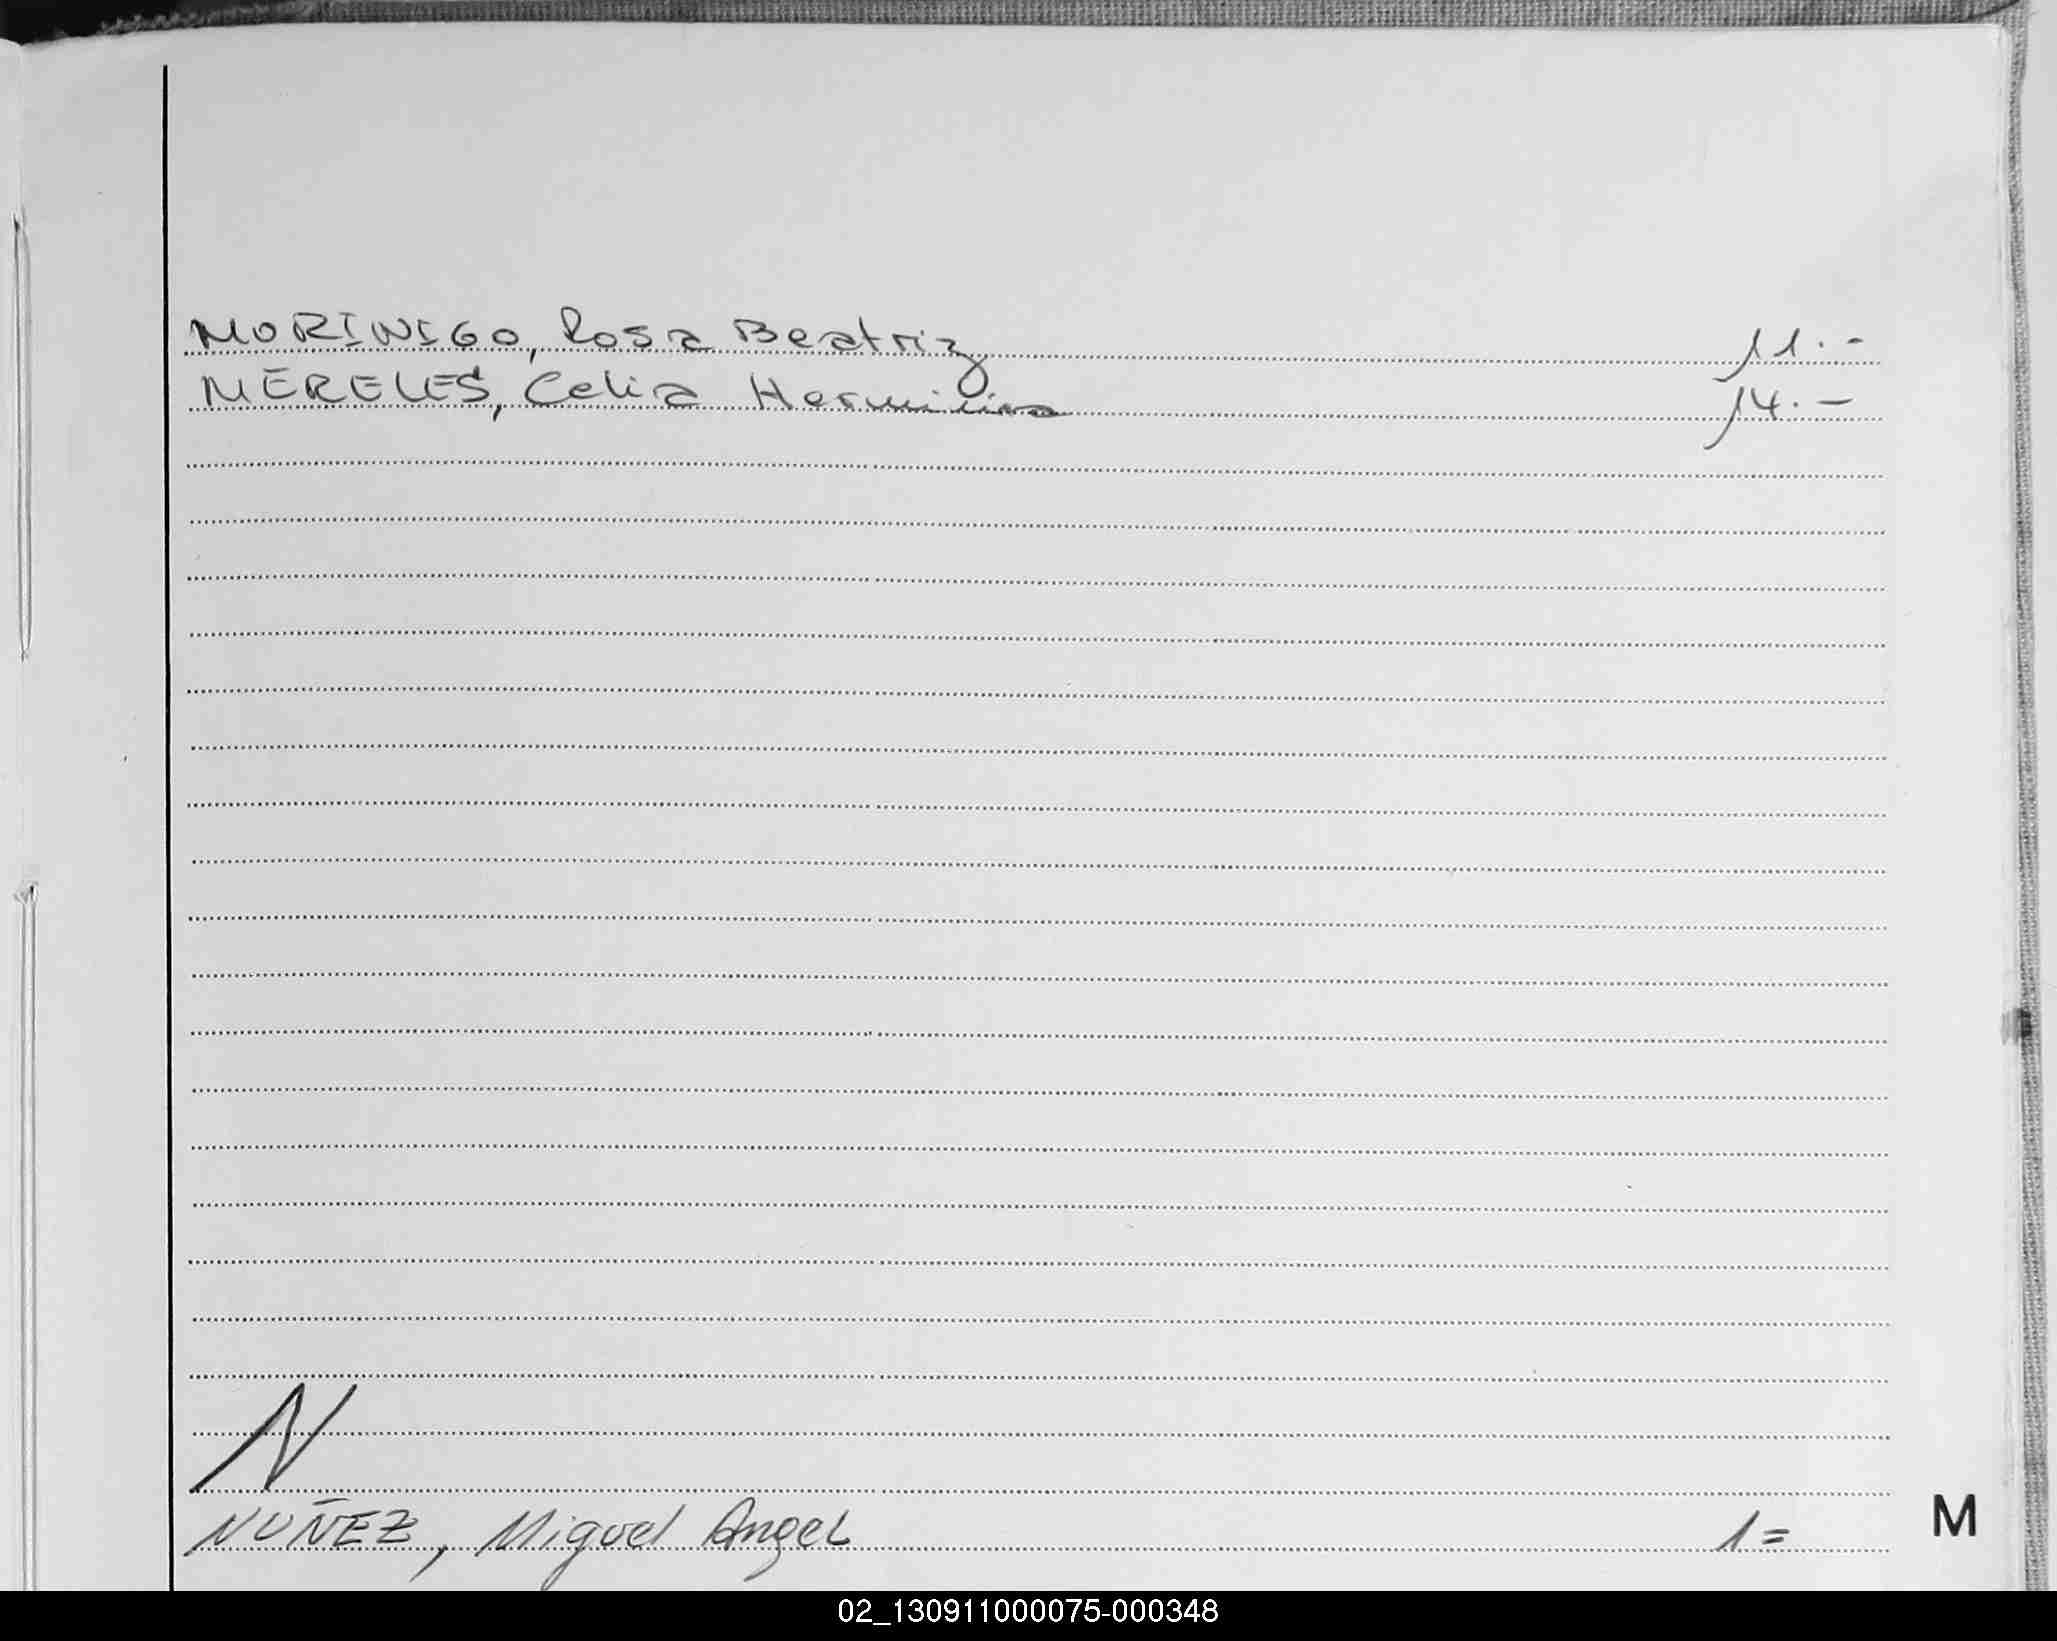 MORINIGO, Rosa Beatriz 11.-
MERELES, Celia Herminia 14.-
N
NUÑEZ, Miguel Angel 1=
M
02_130911000075-000348